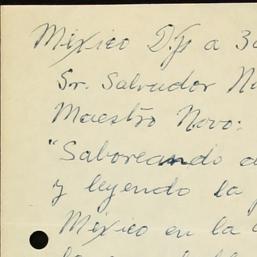 México D.F. a 30
Sr. Salvador No
Maestro Novo:
"Saboreando
y leyendo la
México en la